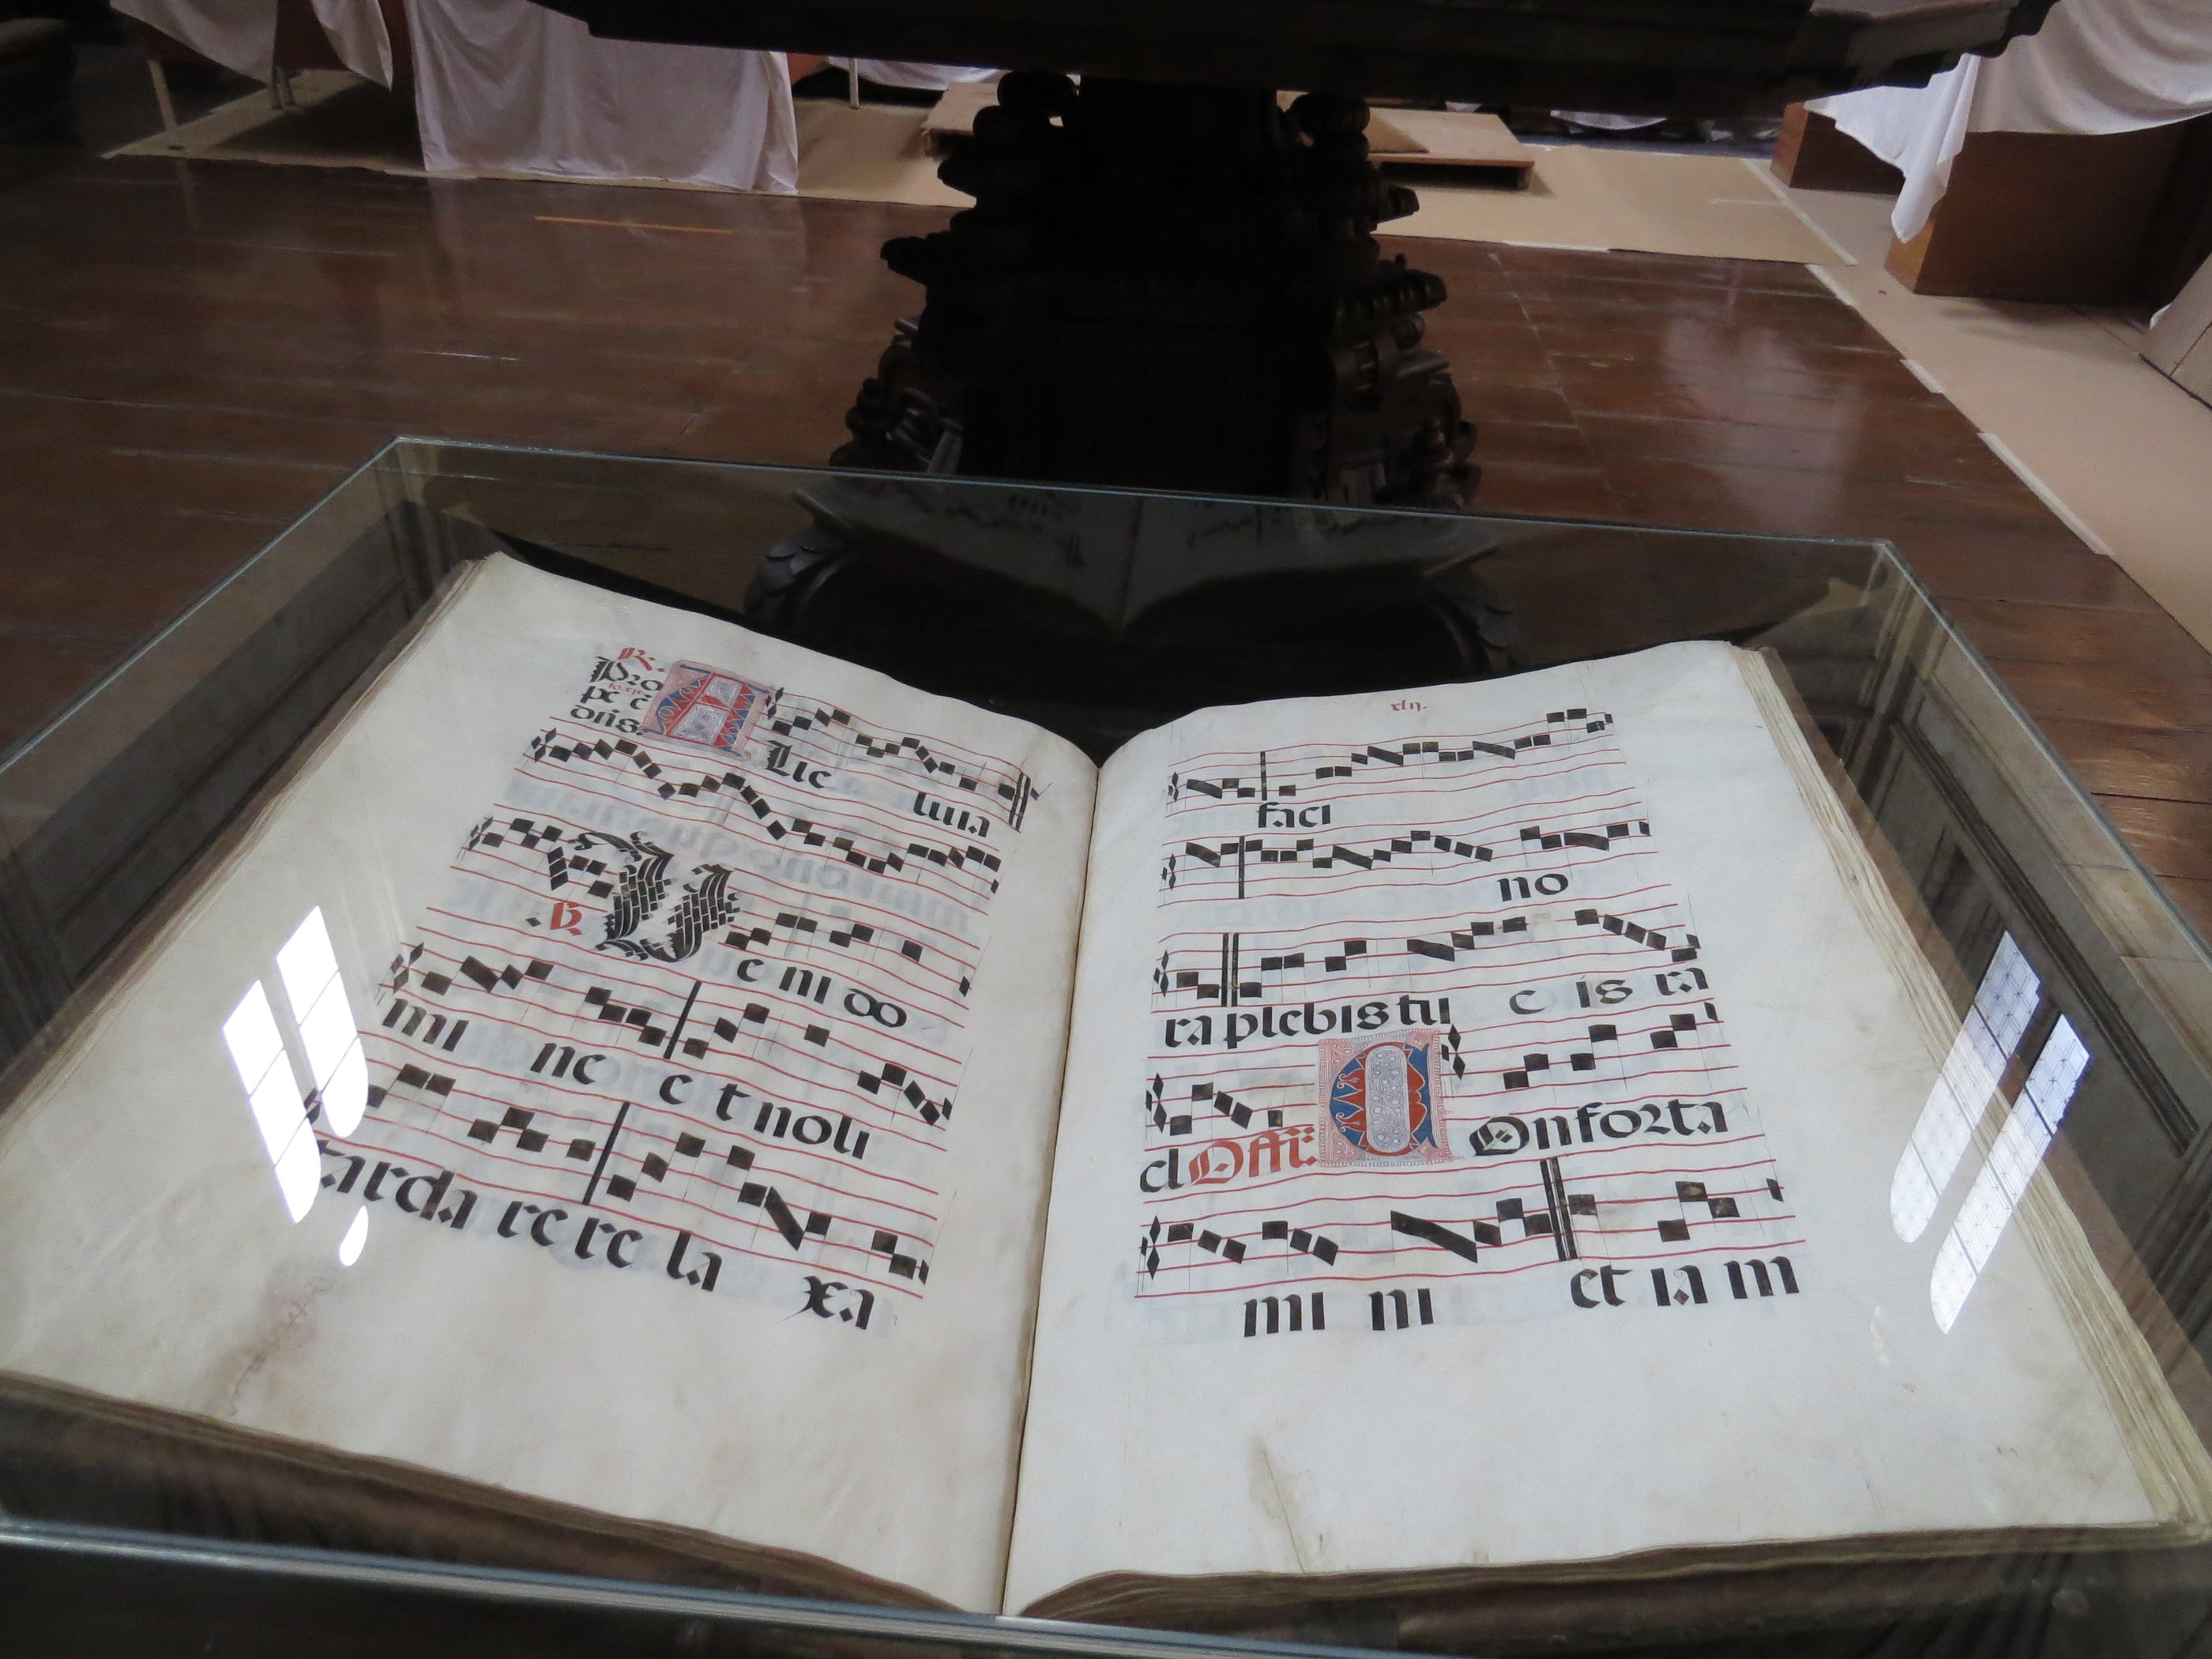 R.
Pro
pe e
dns.
A Lle luia
℣ V e ni do
mi ne e t noli
tarda re re la xa
xlij.
faci
no
ra plebis tu e is ra
el Offr̃. C Onforta
mi ni et ia m